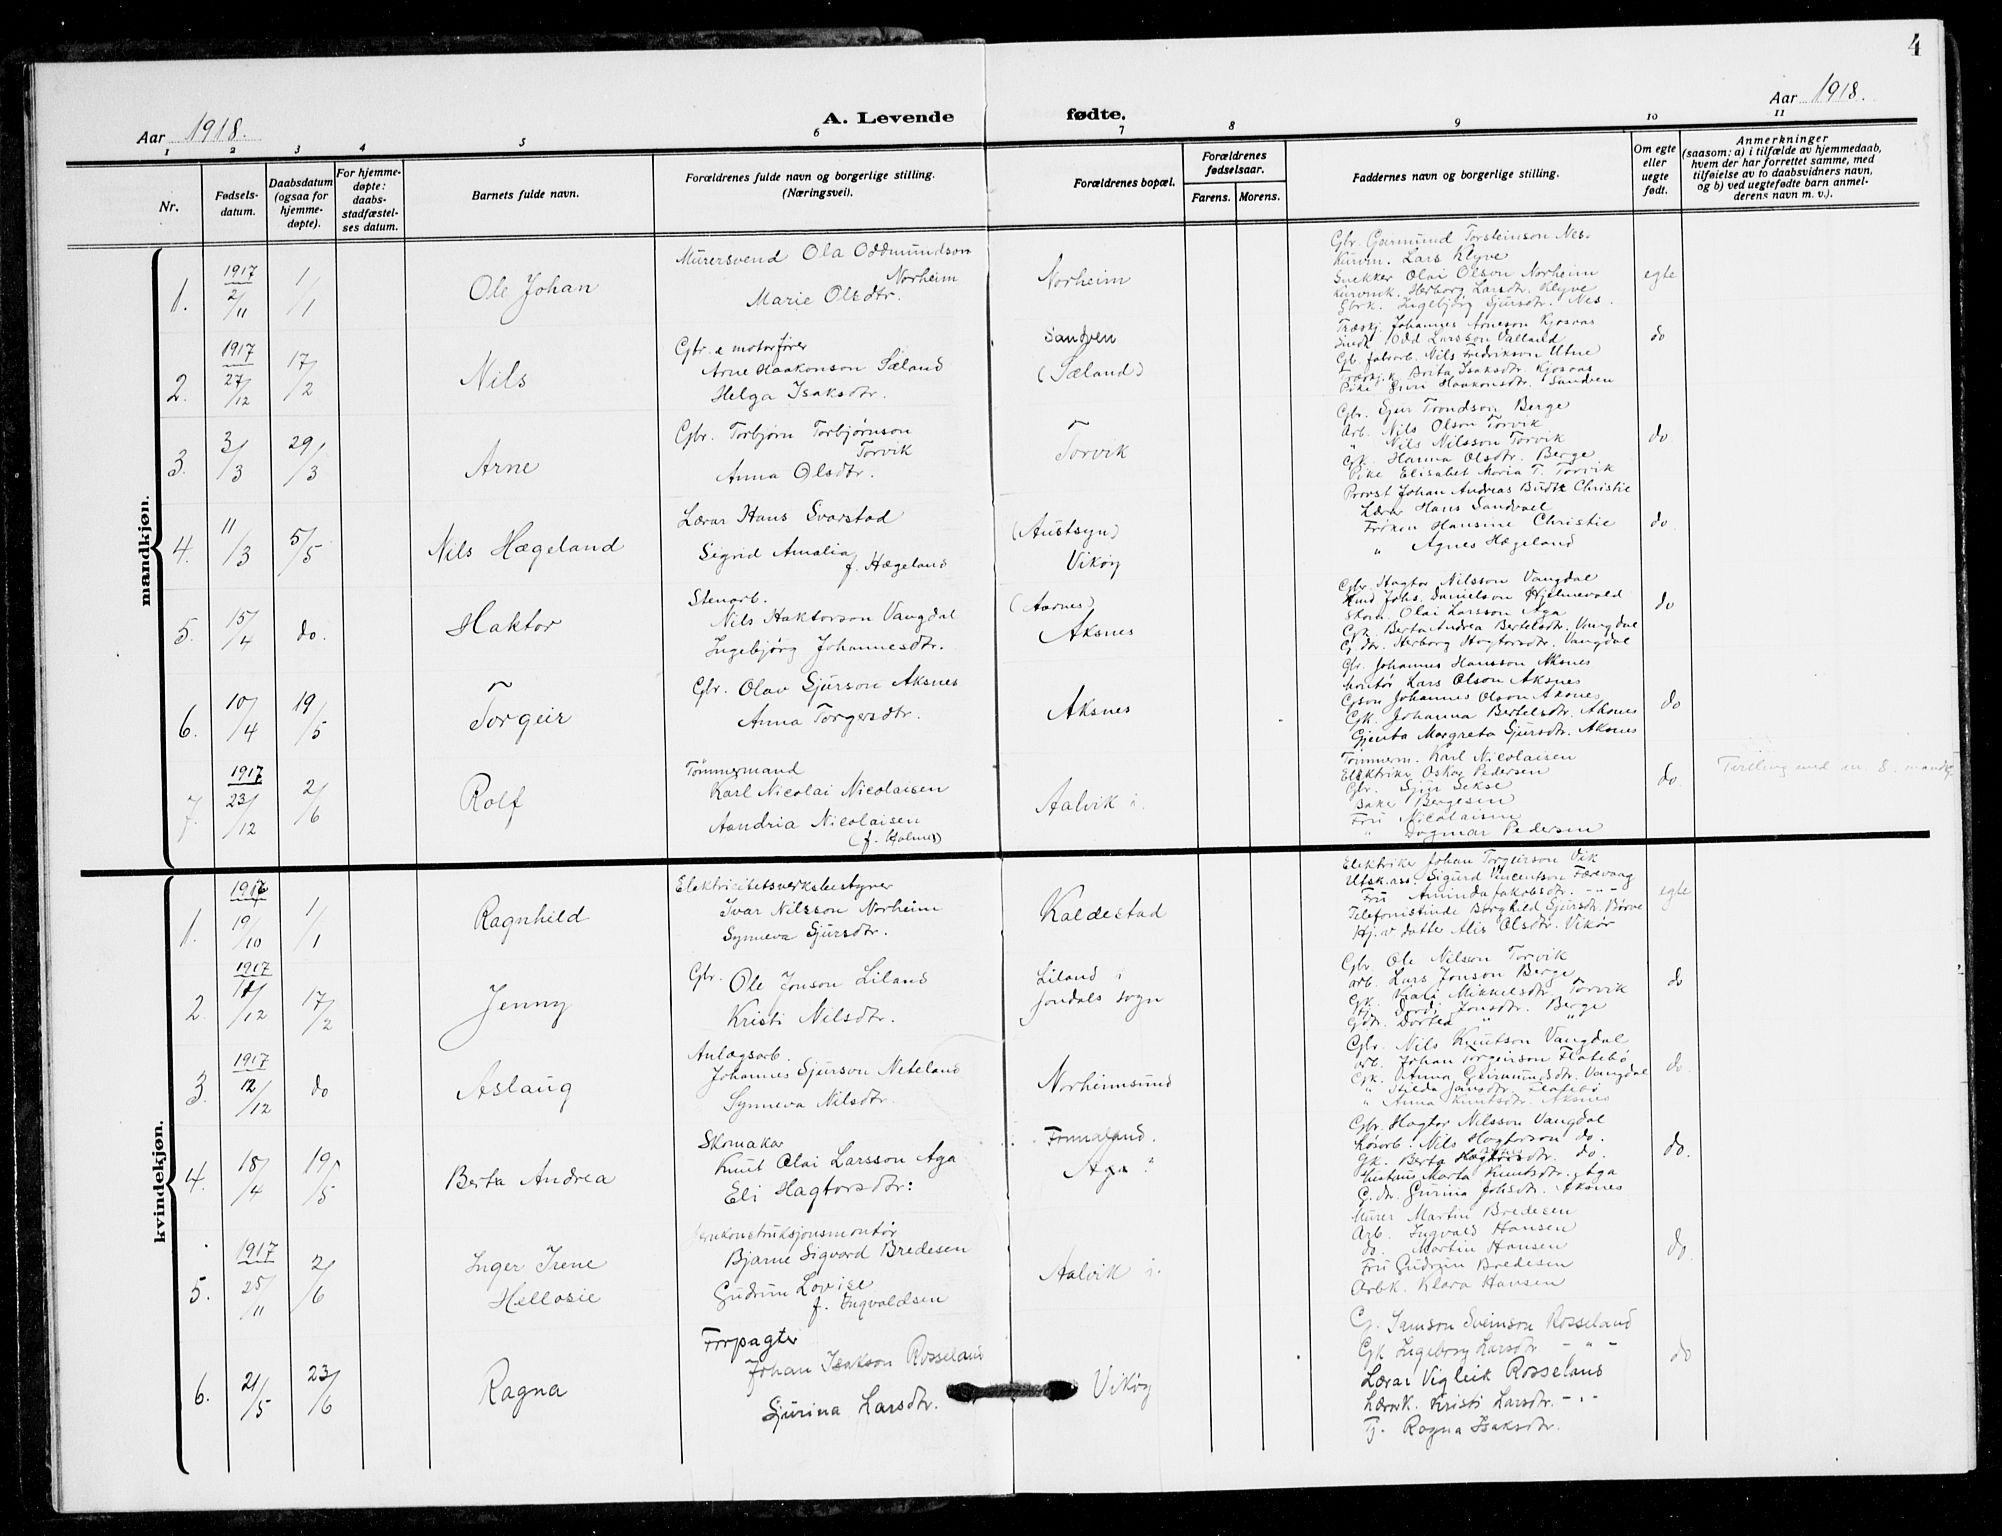 4
Aar 1918.
A. Levende fødte.
Aar 1918.
1 2 3 4 5 6 7 8 9 10 11
Nr.
Fødsels-
datum.
Daabsdatum
(ogsaa for
hjemme-
døpte).
For hjemme-
døpte:
daabs-
stadfæstel-
ses datum.
Barnets fulde navn.
Forældrenes fulde navn og borgerlige stilling.
(Næringsvei).
Forældrenes bopæl.
Forældrenes
fødselsaar.
Farens. Morens.
Faddernes navn og borgerlige stilling.
Om egte
eller
uegte
født.
Anmerkninger
(saasom: a) i tilfælde av hjemmedaab,
hvem der har forrettet samme, med
tilføielse av to daabsvidners navn,
og b) ved uegtefødte barn anmel-
derens navn m. v.).
mandkjøn.
1.
1917
2/11
1/1
Ole Johan
Murersvend Ola Oddmundson
Norheim
Marie Olsdtr.
Norheim
Gbr. Garmund Torsteinson Nes.
Kurvm. Lars Klyve
Snekker Olai Olson Norheim
Kurvmk. Herborg Larsdtr. Klyve
Gbrk. Ingebjørg Sjursdtr. Nes.
egte
2.
1917
27/12
17/2
Nils
Gbr. & motorfører
Arne Haakonson Sæland
Helga Isaksdtr.
Sandven
(Sæland)
Træskj. Johannes Arneson Kjosaas
Snedk. Odd Larsson Valland
Gb. fabrarb. Nils Fredrikson Utne
Træskj.k. Brita Isaksdtr. Kjosaas
Pike Guri Haakonsdtr. Sandven
do
3.
3/3
29/3
Arne
Gbr. Torbjørn Torbjørnson
Torvik
Anna Olsdtr.
Torvik
Gbr. Sjur Trondson Berge
Arb. Nils Olson Torvik
" Nils Nilsson Torvik
Gk. Hanna Olsdtr. Berge
Pike Elisabet Maria T. Torvik
do
4.
11/3
5/5
Nils Hægeland
Lærar Hans Svarstad
Sigrid Amalia
f. Hægeland
(Austsyn)
Vikøy
Provst Johan Andreas Budtz Christie
Lærer Hans Sandvael
Frøken Hansine Christie
" Agnes Hægeland
do
5.
15/4
do.
Haktor
Stenarb.
Nils Haktorson Vangdal
Ingebjørg Johannesdtr.
(Aarnes)
Aksnes
Gbr. Hagtor Nilsson Vangdal
Johs. Danielson Hjelmevold
Skom. Olai Larsson Aga
Gk. Berta Andrea Bertelsdtr. Vangdal
G.dtr. Herborg Hagtorsdtr. Vangdal
do
6.
10/4
19/5
Torgeir
Gbr. Olav Sjurson Aksnes
Anna Torgersdtr.
Aksnes
Gbr. Johannes Hansson Aksnes
Montør Lars Olson Aksnes
Gson Johannes Olson Aksnes
Gk. Johanna Bertelsdtr. Aksnes
Gjenta Margreta Sjursdtr. Aksnes
do
7.
1917
23/12
2/6
Rolf
Tømmermand
Karl Nicolai Nicolaisen
Aandria Nicolaisen
(f. Holmes)
Aalvik i.
Tømmerm. Karl Nicolaisen
Elektrike Oskar Pedersen
Gbr. Sjur Sekse
Bergesen
Fru Nicolaisen
" Dagmar Pedersen
do.
Tvilling med nr. 8. mandkj.
kvindekjøn.
1.
1916
19/10
1/1
Ragnhild
Elektricitetsverksbestyrer
Ivar Nilsson Norheim
Synneva Sjursdtr.
Kaldestad
Elektrike Johan Torgeirson Vik
Utsk.ass. Sigurd Vincentson Færevaag
Fru Aminda Jakobsdtr. -"-
Telefonistinde Borghild Sjursdtr. Børve
Hj.v. datter Alis Olsdtr. Vikør
egte
2.
1917
/12
17/2
Jenny
Gbr. Ole Jonson Liland
Kristi Nilsdtr.
Liland i
Jondals sogn
Gbr. Ole Nilson Torvik
arb. Lars Jonson Berge
Gk. Kari Mikkelsdtr. Torvik
Gk. Jonsdtr. Berge
Gdtr. Dortea " "
do
3.
1917
12/12
do
Aslaug
Anlægsarb.
Johannes Sjurson Neteland
Synneva Nilsdtr.
Norheimsund
Gbr. Nils Knutson Vangdal
arb. Johan Torgeirson Flatebø
Gk. Anna Geirmundsdtr. Vangdal
" Hilda Jansdtr. Flatebø
" Anna Knutsdtr. Aksnes
do.
4.
18/4
19/5
Berta Andrea
Skomakar
Knut Olai Larsson Aga
Eli Hagtorsdtr:
Framaland.
Aga
Gbr. Hagtor Nilsson Vangdal
Løsarb. Nils Hagtorson do.
Gk. Berta dtr. do.
Marta Knutsdtr. Aga
G.dtr. Gurina Johsdtr. Aksnes
do.
5.
1917
25/11
2/6
Inger Irene
Hellosie
Jernkonstruksjonsmontør
Bjarne Sigvard Bredesen
Gudrun Lovise
f. Ingvaldsen
Aalvik i.
Murer Martin Bredesen
Arb. Ingvald Hansen
do. Martin Hansen
Fru Gudrun Bredesen
Arbk. Klara Hansen
do.
6.
21/5
23/6
Ragna
Forpagter
Johan Isakson Rosseland
Sjurina Larsdtr.
Vikøy
G. Samson Sveinson Rosseland
Gk Ingeborg Larsdtr -"-
Lærar Vigleik Rosseland
Lærark. Kristi Larsdtr. -"-
Tj. Ragna Isaksdtr.
do